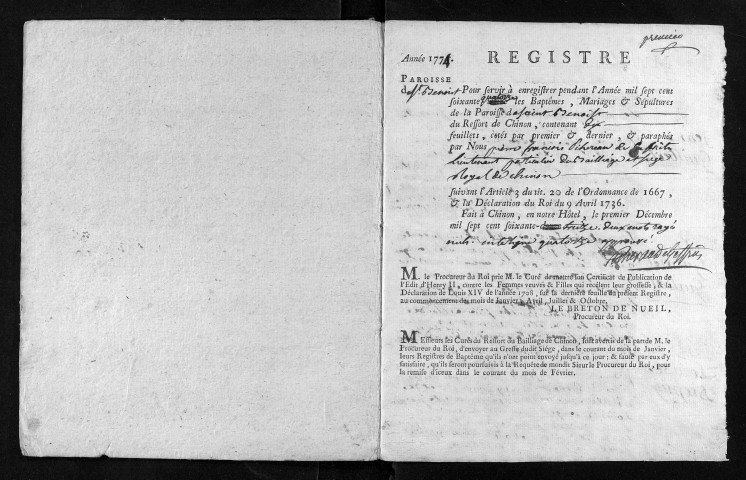 premier
Année 1774. REGISTRE
PAROISSE
de St Benoist Pour servir à enregistrer pendant l'Année mil sept cens
soixante quatorze les Baptêmes, Mariages & Sépultures
de la Paroisse de saint Benoist
du Ressort de Chinon, contenant six
feuillets, cotés par premier & dernier, & paraphés
par Nous pierre françois
lieutenant particulier du Bailliage et siege
Royal de chinon
suivant l'Article 3 du tit. 20 de l'Ordonnance de 1667,
& la Déclaration du Roi du 9 Avril 1736.
Fait à Chinon, en notre Hôtel, le premier Décembre
mil sept cent soixante-treize. deux mots rayé
nuls. quatorze approuvé.
M. le Procureur du Roi prie M. le Curé de mettre son Certificat de Publication de
l'Edit d'Henry II, contre les Femmes veuves & Filles qui recélent leur grossesse, & la
Déclaration de Louis XIV de l'année 1708, sur la derniere feuille du présent Registre,
au commencement des mois de Janvier, Avril, Juillet & Octobre.
LE BRETON DE NUEIL,
Procureur du Roi.
Messieurs les Curés du Ressort du Bailliage de Chinon, sont avertis de la part de M. le
Procureur du Roi, d'envoyer au Greffe dudit Siége, dans le courant du mois de Janvier,
leurs Registres de Baptême qu'ils n'ont point envoyé jusqu'à ce jour; & faute par eux d'y
satisfaire, qu'ils seront poursuivis à la Requête de mondit Sieur le Procureur du Roi, pour
la remise d'iceux dans le courant du mois de Février.